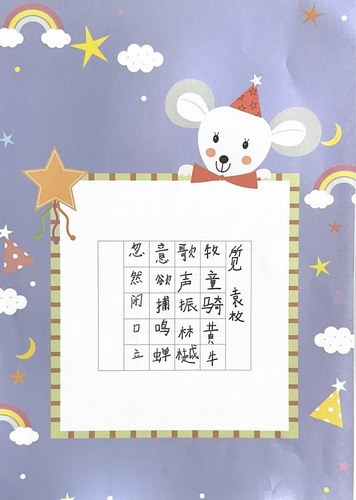 所见 袁枚
牧童骑黄牛
歌声振林樾
意欲捕鸣蝉
忽然闭口立